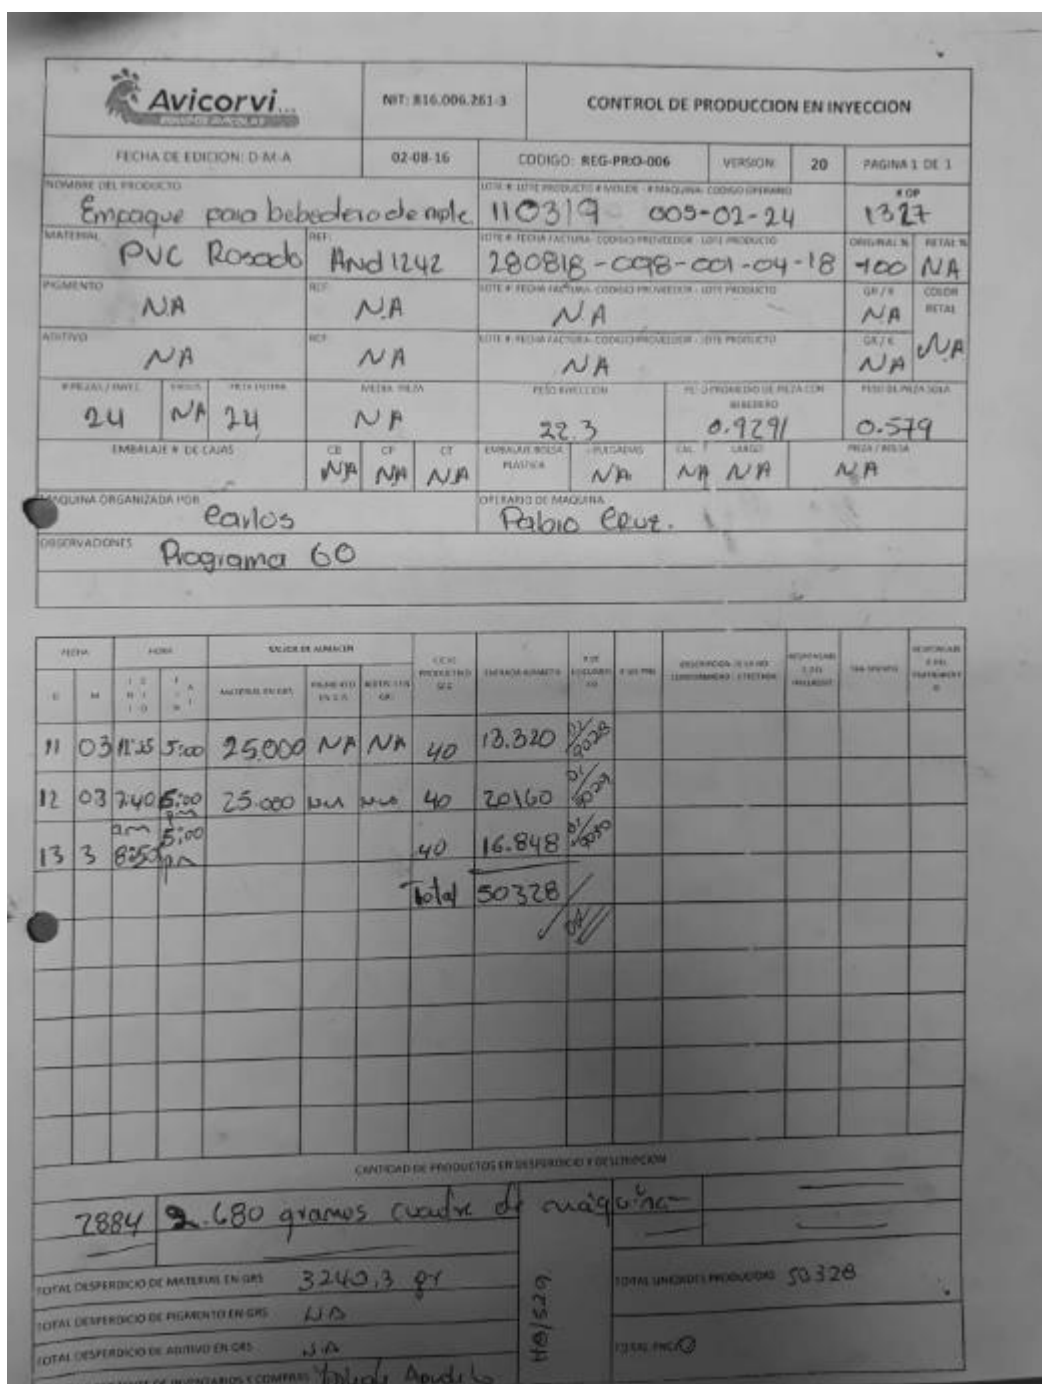 Avicorvi...
EQUIPOS AVICOLAS
NIT: 816.006.261-3
CONTROL DE PRODUCCION EN INYECCION
FECHA DE EDICION: D-M-A
02-08-16
CODIGO: REG-PRO-006
VERSION
20
PAGINA 1 DE 1
NOMBRE DEL PRODUCTO
Empaque para bebedero de niple
LOTE #: LOTE PRODUCTO # MOLDE - # MAQUINA- CODIGO OPERARIO
110319 005-02-24
# OP
1327
MATERIAL
PVC Rosado
REF:
And 1242
LOTE #: FECHA FACTURA- CODIGO PROVEEDOR - LOTE PRODUCTO
280818-098-001-04-18
ORIGINAL %
100
RETAL %
NA
PIGMENTO
NA
REF
NA
LOTE #: FECHA FACTURA- CODIGO PROVEEDOR - LOTE PRODUCTO
NA
GR / K
NA
COLOR RETAL
NA
ADITIVO
NA
REF
NA
LOTE #: FECHA FACTURA- CODIGO PROVEEDOR - LOTE PRODUCTO
NA
GR / K
NA
# PIEZAS / INYEC.
24
NA
PIEZA ENTERA
24
MEDIA PIEZA
NA
PESO INYECCION
22.3
PESO PROMEDIO DE PIEZA CON BEBEDERO
0.9291
PESO DE PIEZA SOLA
0.579
EMBALAJE # DE CAJAS
CB
NA
CP
NA
CT
NA
EMBALAJE BOLSA PLASTICA
PULGADAS
NA
CAL.
NA
LARGO
NA
PIEZA / BOLSA
NA
MAQUINA ORGANIZADA POR
Carlos
OPERARIO DE MAQUINA
Pabio Cruz.
OBSERVACIONES
Programa 60
FECHA
HORA
SALIDA DE ALMACEN
CICLO PRODUCTIVO SEG
ENTRADA ALMACEN
# DE DOCUMENTO
D
M
INICIO
FIN
MATERIAL EN GRS
PIGMENTO EN GR
11 03 5:00 25.000 NA NA 40 13.320
12 03 7:40 5:00 pm 25.000 NA NA 40 20160
13 3 am 8:50 5:00 pm 40 16.848
Total 50328
CANTIDAD DE PRODUCTOS EN DESPERDICIO Y DESCRIPCION
2884 2.680 gramos cuadre de máquina
TOTAL DESPERDICIO DE MATERIAL EN GRS 3240,3 gr
TOTAL UNIDADES PRODUCIDAS 50328
TOTAL DESPERDICIO DE PIGMENTO EN GRS NA
TOTAL DESPERDICIO DE ADITIVO EN GRS NA
TOTAL PNC